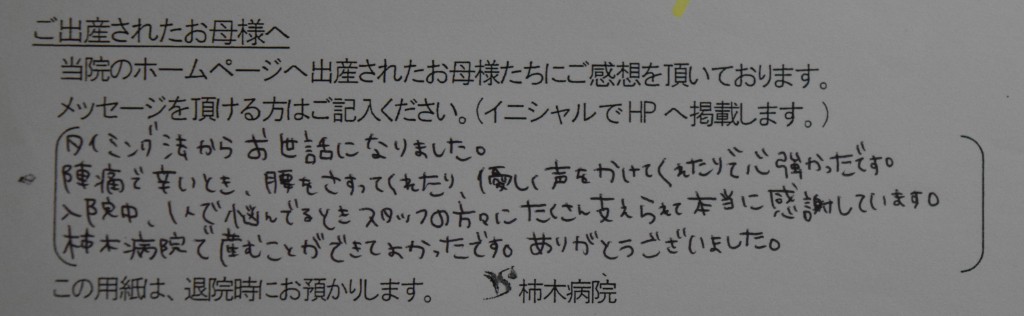 ご出産されたお母様へ
当院のホームページへ出産されたお母様たちにご感想を頂いております。
メッセージを頂ける方はご記入ください。(イニシャルでHPへ掲載します。)
タイミング法からお世話になりました。
陣痛で辛いとき、腰をさすってくれたり、優しく声をかけてくれたりで心強かったです。
入院中、1人で悩んでるときスタッフの方々にたくさん支えられて本当に感謝しています。
柿木病院で産むことができてよかったです。ありがとうございました。
この用紙は、退院時にお預かりします。 柿木病院